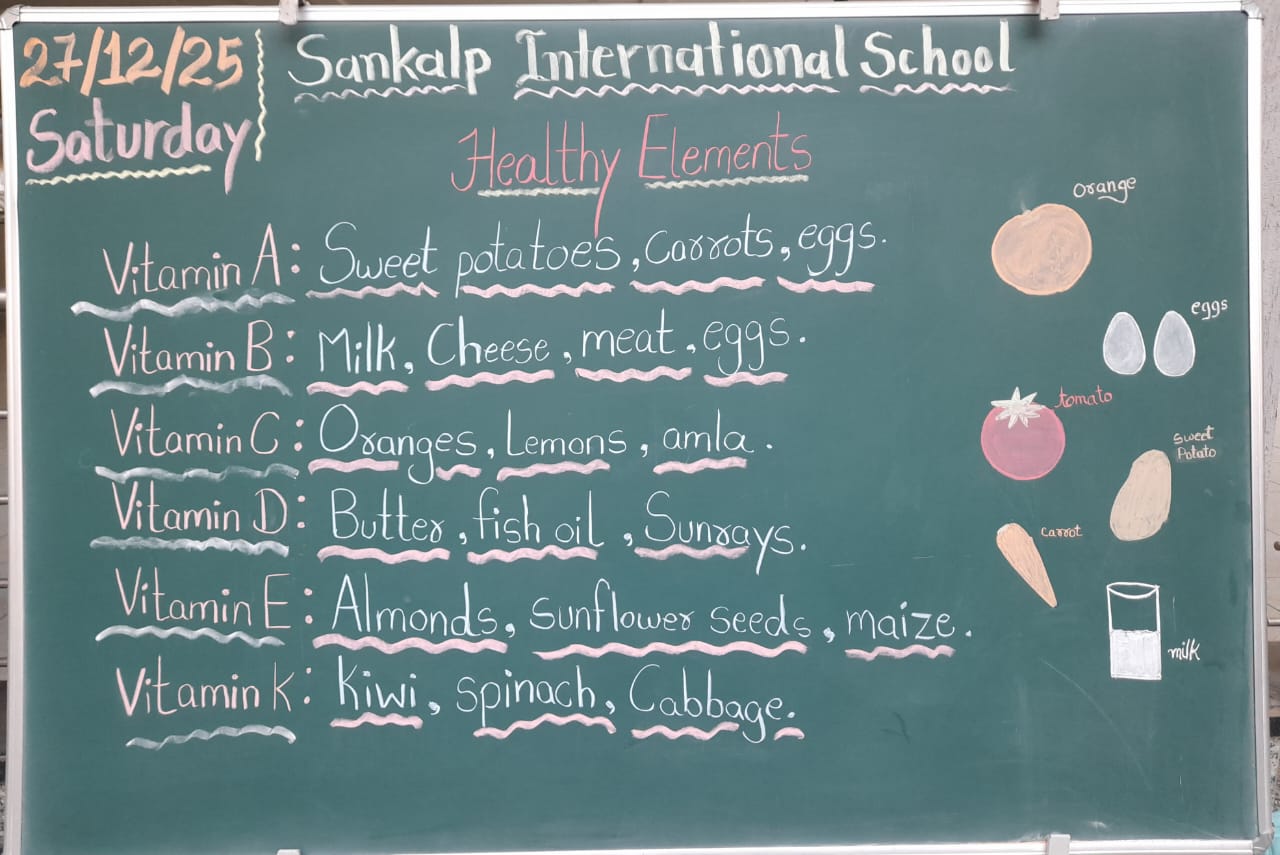 27/12/25
Saturday
Sankalp International School
Healthy Elements
Vitamin A: Sweet potatoes, carrots, eggs.
Vitamin B: Milk, Cheese, meat, eggs.
Vitamin C: Oranges, Lemons, amla.
Vitamin D: Butter, fish oil, Sunrays.
Vitamin E: Almonds, sunflower seeds, maize.
Vitamin K: kiwi, spinach, Cabbage.
orange
eggs
tomato
sweet
Potato
carrot
milk